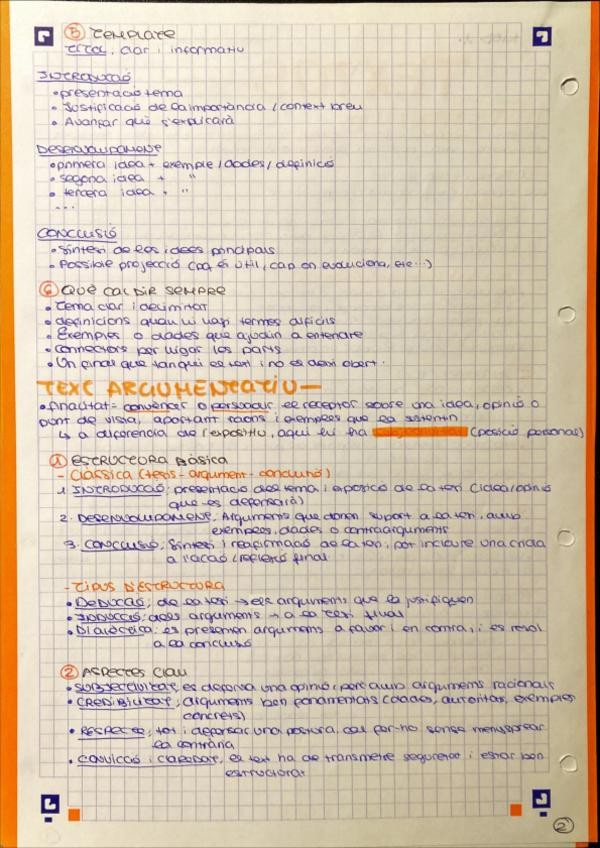 ⑤ TEMPLATE
TÍTOL; clar i informatiu
INTRODUCCIÓ
• presentació tema
• Justificació de la importància / context breu
• Avançar què s'explicarà
DESENVOLUPAMENT
• primera idea + exemple / dades / definició
• segona idea + "
• tercera idea + "
...
CONCLUSIÓ
• Síntesi de les idees principals
• Possible projecció (pq és útil, cap on evoluciona, etc...)
⑥ QUÈ CAL DIR SEMPRE
• Tema clar i delimitat
• definicions quan hi hagi termes difícils
• Exemples o dades que ajudin a entendre
• Connectors per lligar les parts
• Un final que tanqui el text i no el deixi obert.
TEXT ARGUMENTATIU —
• finalitat = convèncer o persuadir el receptor sobre una idea, opinió o
punt de vista, aportant raons i exemples que la sustentin
↳ a diferència de l'expositiu, aquí hi ha subjectivitat (posició personal)
① ESTRUCTURA BÀSICA
- Clàssica (tesis - argument - conclusió)
1. INTRODUCCIÓ; presentació del tema i exposició de la tesi (idea/opinió
que es defensarà)
2. DESENVOLUPAMENT; Arguments que donen suport a la tesi, amb
exemples, dades o contraarguments
3. CONCLUSIÓ; Síntesi i reafirmació de la tesi, pot incloure una crida
a l'acció / reflexió final
- TIPUS D'ESTRUCTURA
• DEDUCCIÓ; de la tesi → els arguments que la justifiquen
• INDUCCIÓ; dels arguments → a la tesi final
• DIALÈCTICA; es presenten arguments a favor i en contra, i es resol
a la conclusió
② ASPECTES CLAU
• SUBJECTIVITAT; es defensa una opinió, però amb arguments racionals
• CREDIBILITAT; arguments ben fonamentats (dades, autoritat, exemples
concrets)
• RESPECTE; tot i defensar una postura, cal fer-ho sense menysprear
la contrària
• CONVICCIÓ i CLAREDAT; el text ha de transmetre seguretat i estar ben
estructurat
②